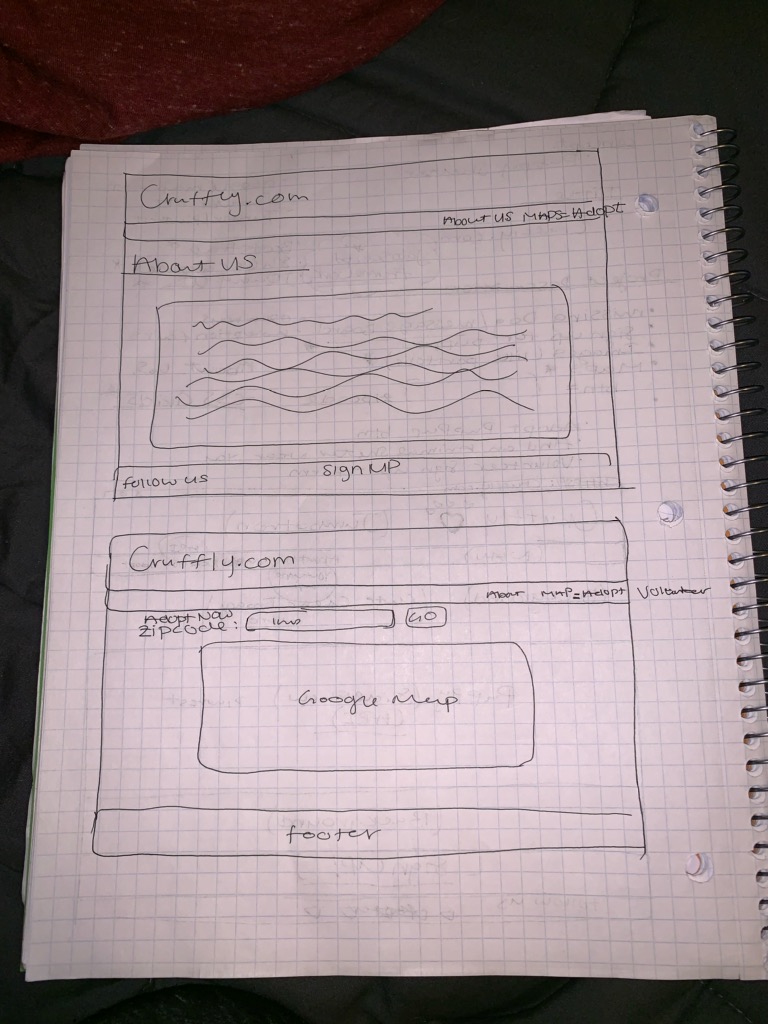 Cruffly.com
About US MAPS=Adopt
About US
sign up
follow us
Cruffly.com
About MAP=Adopt Volunteer
Adopt Now
zipcode: GO
Google Map
footer